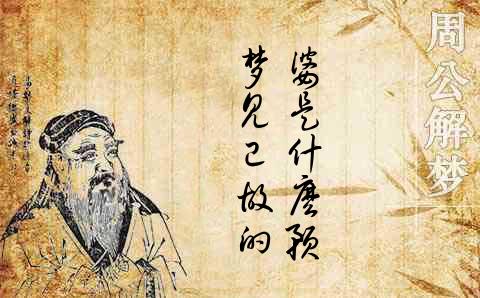 周公解梦
梦见已故的
婆是什麼预